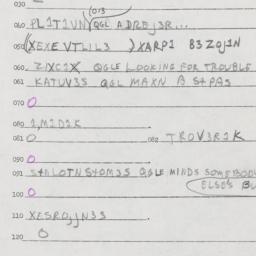 030
013
040 PL1T1VN QGL ADRBJ3R...
050 (XEXEVTLIL3 ) XARP1 83ZOJ1N
060 ZIXC1X QGLE LOOKING FOR TROUBLE
061 KATUV3S QGL MAXN B S+PAS
070 O
080 1,M1D1K
081 O 082 TROV3R1K
090 O
091 S+NLOTNS+OM3S QGLE MINDS SOMEBODY
ELSE'S BU
100 O
110 XESROJJN33
120 O